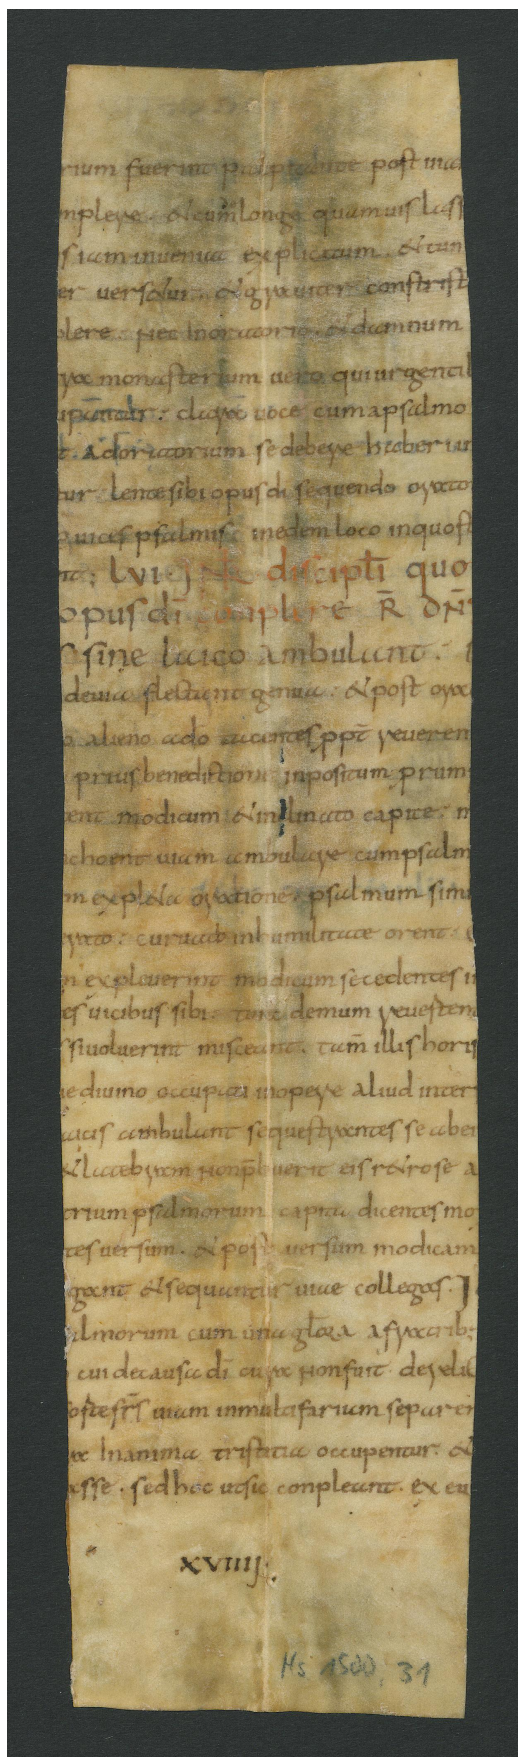 rium fuerint palpitante post ma
mplere. & cum longe quamuis lass
s iam inuenia explicitum. & tun
er uers&ur. & grauiter constrist
plere. nec inoratorio. & damnum
gra monasterium uero qui urgenti
upantur. clara uoce cum a psalmo
t. ad oratorium se debere haberi
tur. lente sibi opus dī sequendo orato
uicis psalmis inedem loco inquo
nt; LVI discipłi quo
opus dī complere R̄ DN̄S
s sine laico ambulant.
deuia flectant genua. & post ora
o alieno ado tacentes ppt̄ reueren
prius benediction inpositum prum
ent modicum & inclinato capite. m
achoent uiam ambulare cum psalm
m expl&a oratione. psalmum simi
rato. curuati inhumilitate orent.
n expleuerint modicum secedentes i
es uicibus sibi. tunc demum reuesten
s si uoluerint misceant. tam̄ illis horis
e diuino occupati inopere aliud inter
laicis ambulant sequestrantes se aber
& latebram non p̄buerit eis r&rose a
trium psalmorum capita dicentes mo
tes uersum. & post uersum modicam
gant & sequantur uiae collegas.
almorum cum una gloria a fratrib;
cui decausa dī cura non fuit. dereli
ost est frs̄ uiam inmultifarium separen
a In anima tristitia occupentur. &
asse. sed hoc ut sic conpleant. ex eu
XVIIII.
Hs 1500, 31